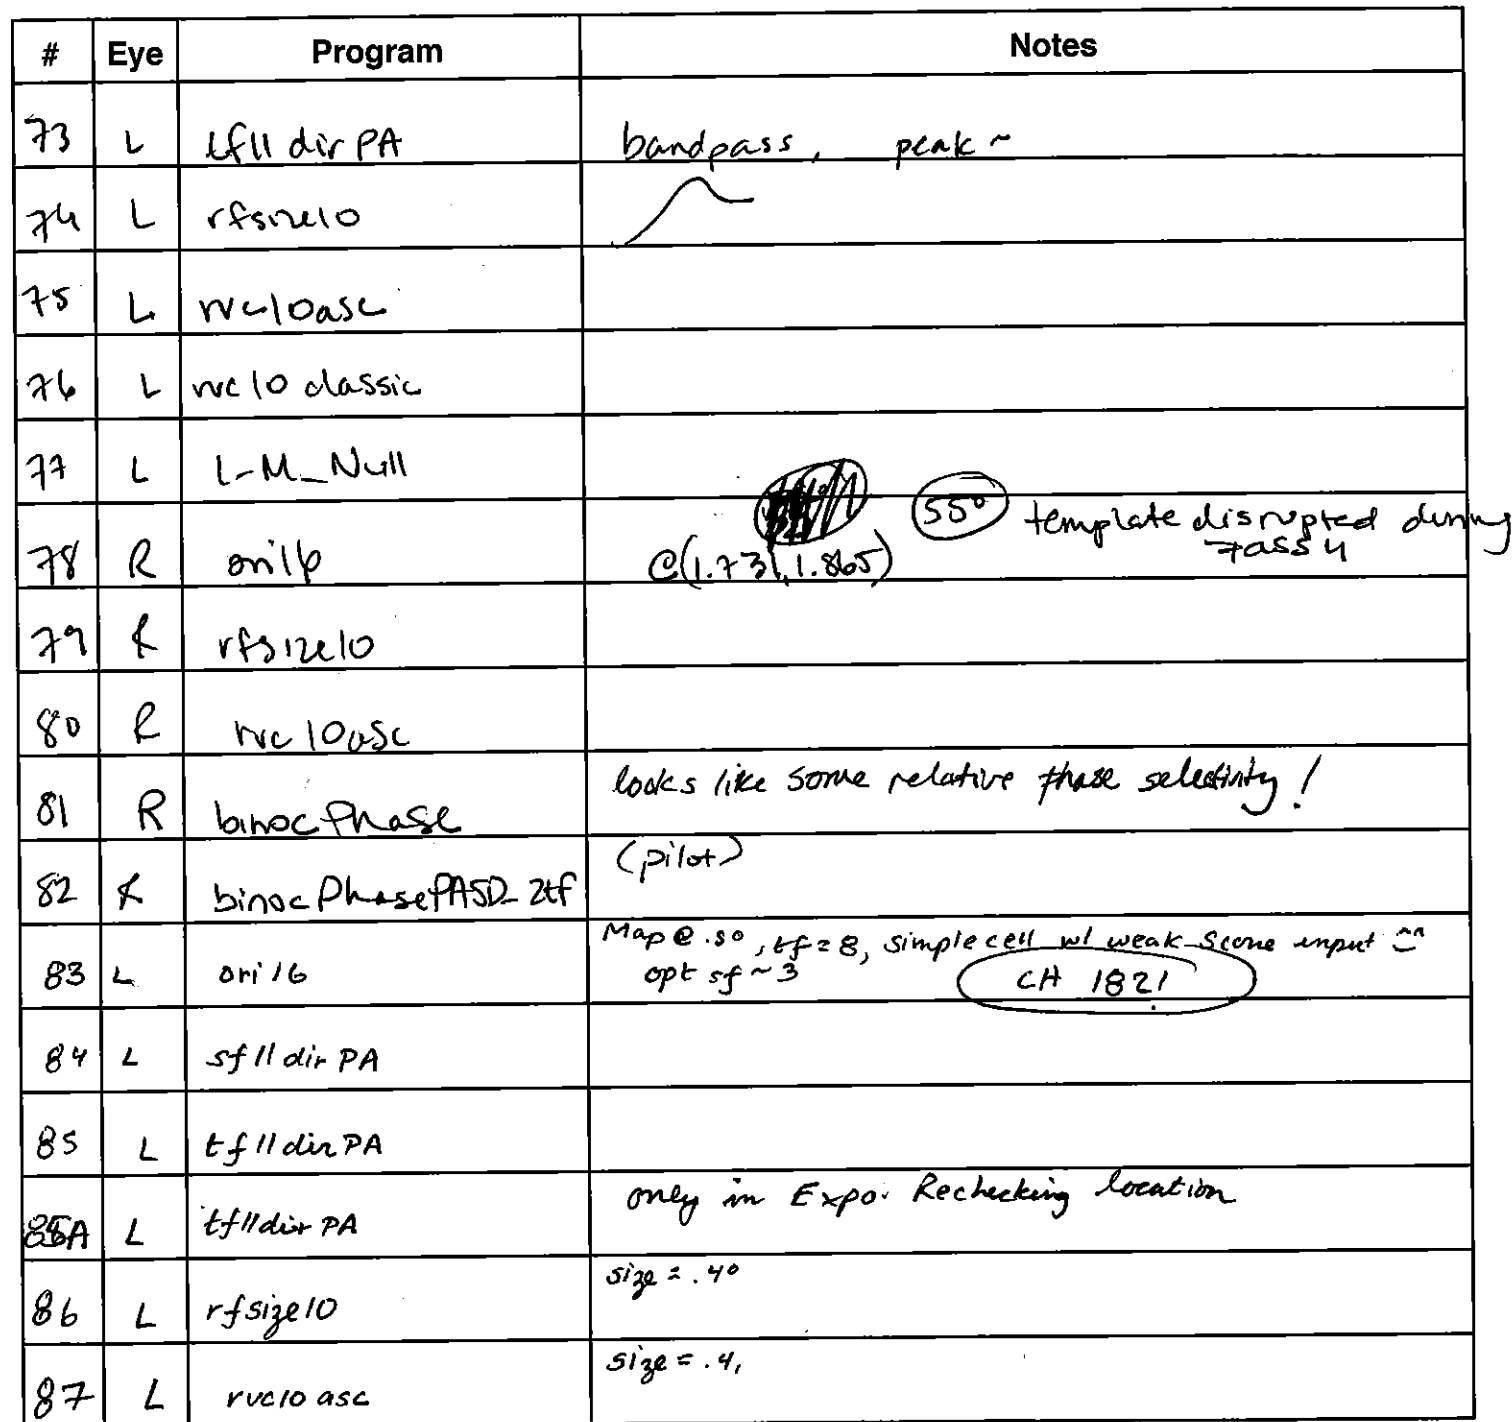 # Eye Program Notes
73 L tf11 dir PA bandpass, peak ~
74 L rfsize10
75 L rvc10asc
76 L rvc10 classic
77 L L-M_Null
78 R ori16 @(1.731, 1.865) 55° template disrupted during
pass 4
79 R rfsize10
80 R rvc10asc
81 R binocPhase looks like some relative phase selectivity!
82 R binocPhasePASD_2tf (pilot)
83 L ori16 Map @ .5°, tf=8, simple cell w/ weak S cone input
opt sf ~ 3 CH 1821
84 L sf11 dir PA
85 L tf11 dir PA
85A L tf11dir PA only in Expo. Rechecking location
86 L rfsize10 size = .4°
87 L rvc10 asc size = .4,